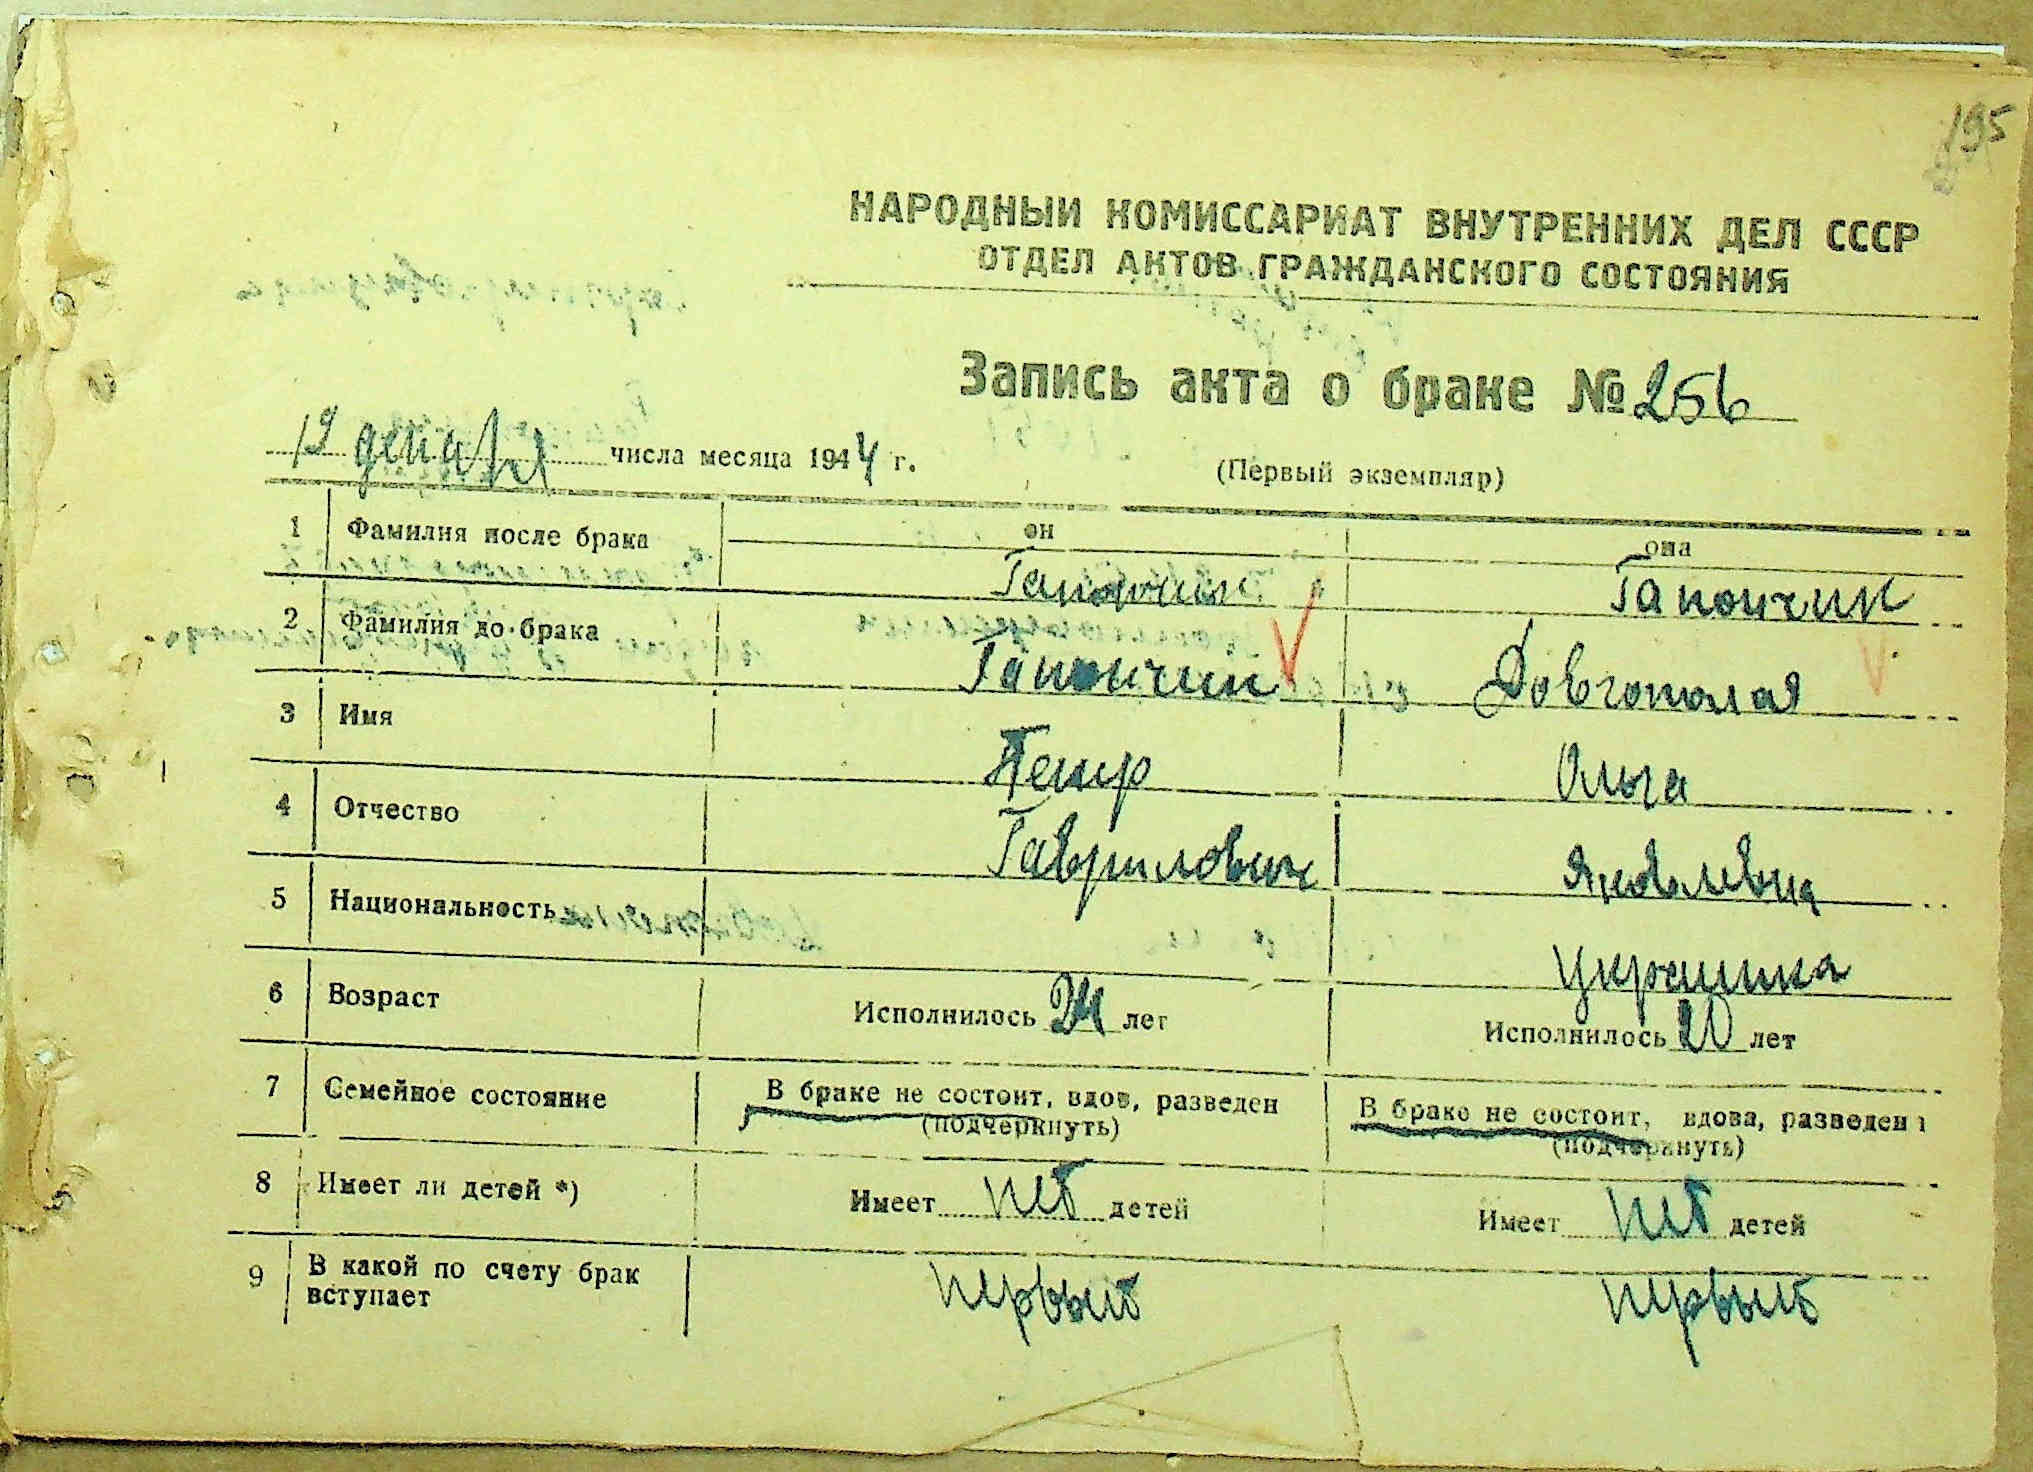 195
НАРОДНЫЙ КОМИССАРИАТ ВНУТРЕННИХ ДЕЛ СССР
ОТДЕЛ АКТОВ ГРАЖДАНСКОГО СОСТОЯНИЯ
Запись акта о браке № 256
19 декабря числа месяца 1944 г.
(Первый экземпляр)
он она
1 Фамилия после брака Гапончик Гапончик
2 Фамилия до брака Гапончик Довгополая
3 Имя Петр Ольга
4 Отчество Гаврилович Яковлевна
5 Национальность Украинка
6 Возраст Исполнилось 24 лет Исполнилось 20 лет
7 Семейное состояние В браке не состоит, вдов, разведен В браке не состоит, вдова, разведен
(подчеркнуть) (подчеркнуть)
8 Имеет ли детей *) Имеет нет детей Имеет нет детей
9 В какой по счету брак вступает первый первый